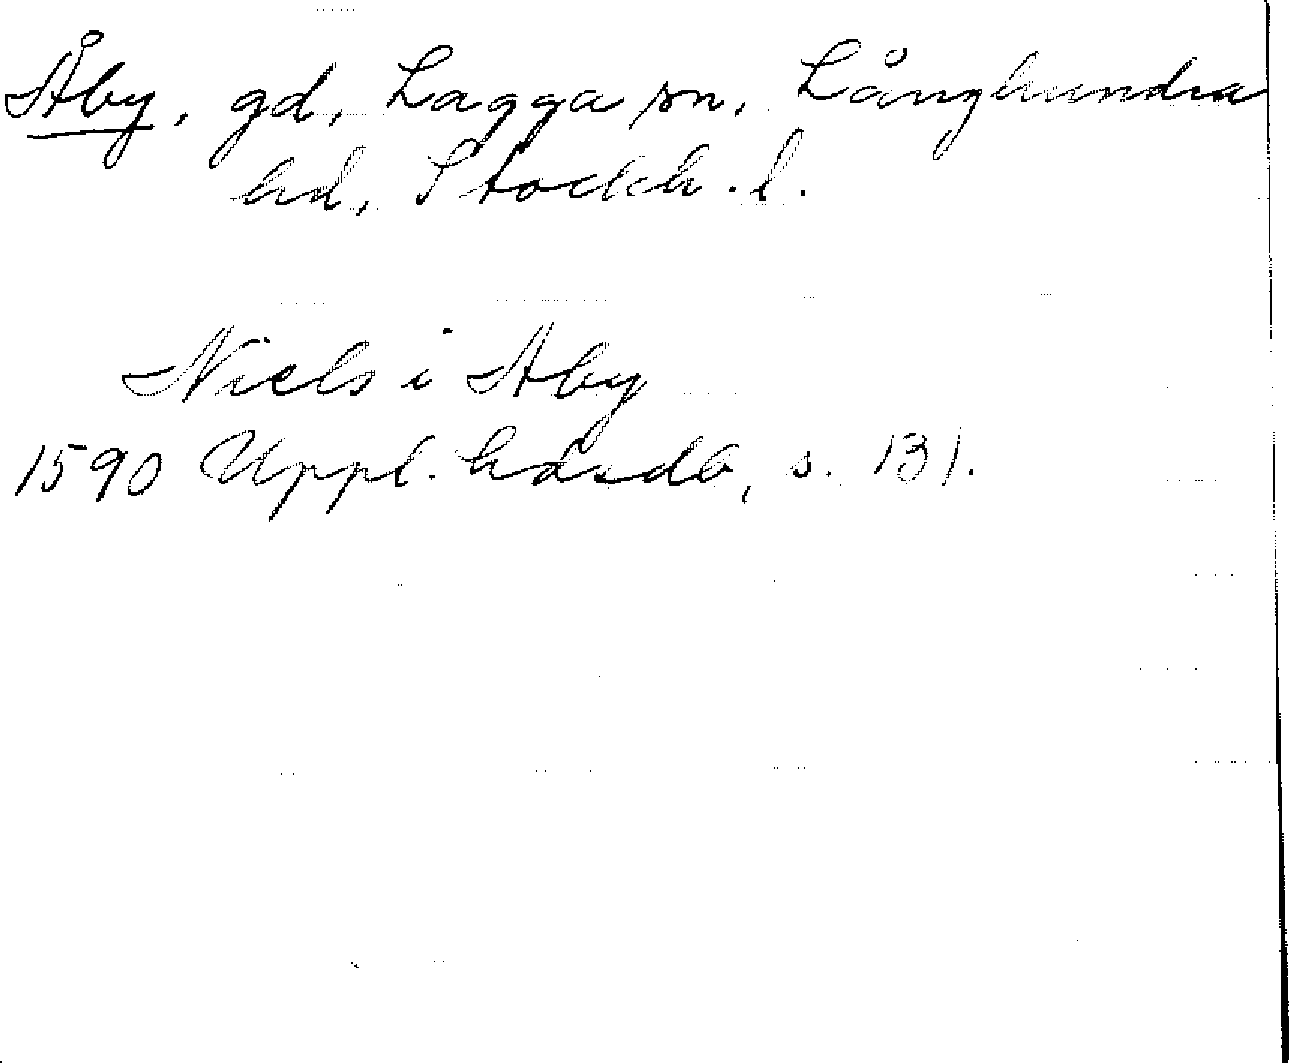 Åby, gd, Lagga sn, Långhundra
hd, Stockh. l.
Niels i Aby
1590 Uppl. hdsdb, s. 131.